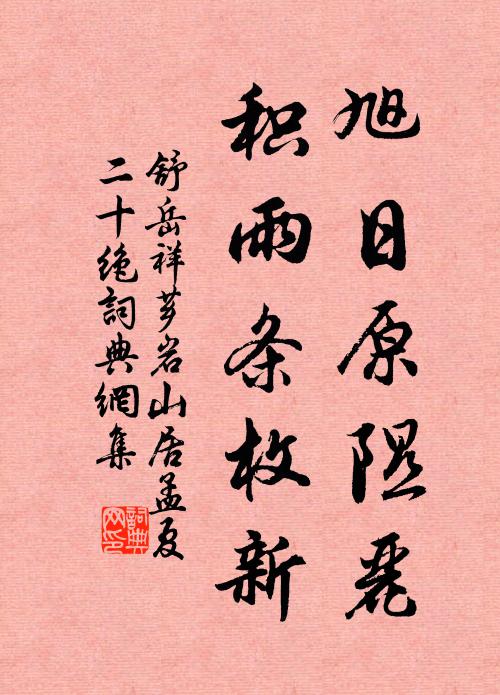 旭日原隰麗
积雨条枚新
舒岳祥芗岩山居孟夏
二十绝詞典網集
詞典网印